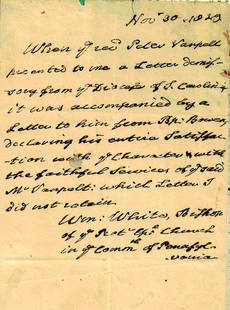 Nov: 30. 1829
When ye revd Peter Vanpelt
presented to me a Letter demis-
sory from ye Diocese of S. Carolina
it was accompanied by a
Letter to him from Bp: Bowen,
declaring his entire Satisfac-
-tion with ye Character & with
the faithful Services of ye said
Mr Vanpelt: which Letter I
did not retain.
Wm: White, Bishop
of ye Prot: Epl Church
in ye Commth of Pensyl-
vania